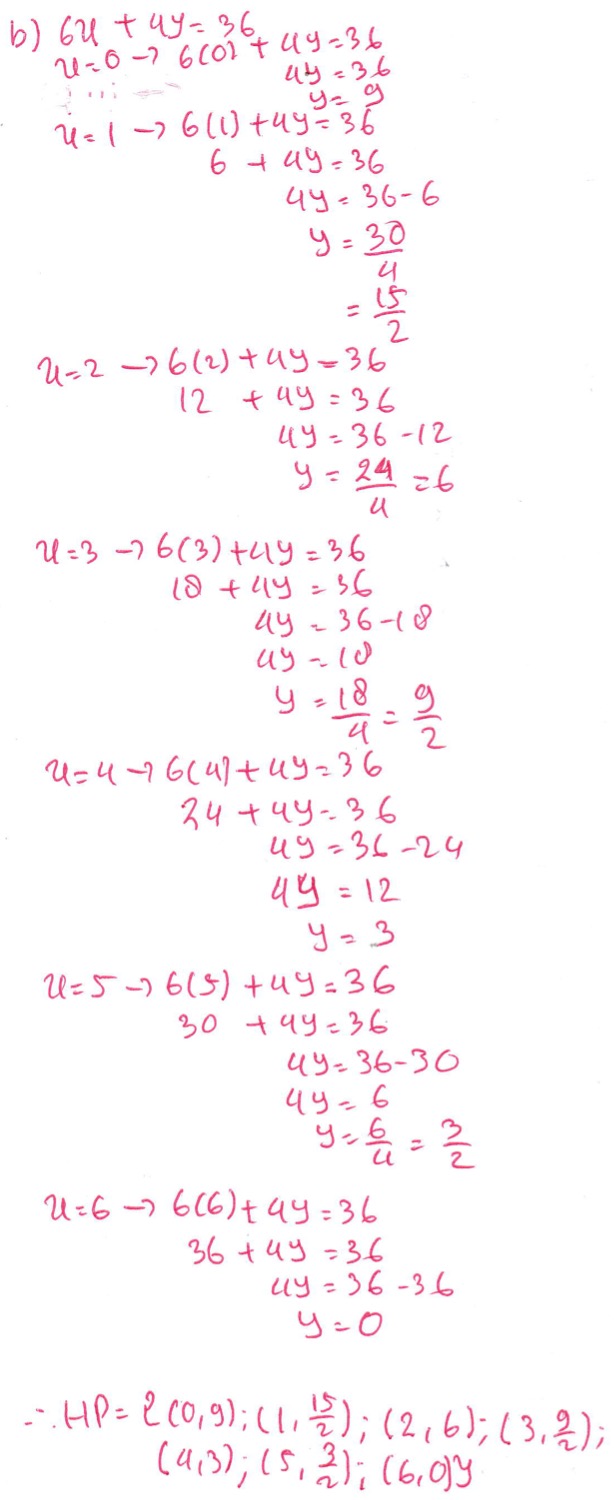 b) 6x + 4y = 36
x=0 → 6(0) + 4y=36
4y = 36
y= 9
x=1 → 6(1)+4y=36
6 + 4y=36
4y = 36-6
y = 30/4
= 15/2
x=2 → 6(2)+4y=36
12 + 4y = 36
4y = 36-12
y = 24/4 =6
x=3 → 6(3)+4y=36
18 + 4y = 36
4y = 36-18
4y = 18
y = 18/4 = 9/2
x=4 → 6(4)+4y=36
24 + 4y = 36
4y = 36-24
4y = 12
y = 3
x=5 → 6(5)+4y=36
30 + 4y=36
4y= 36-30
4y= 6
y= 6/4 = 3/2
x=6 → 6(6)+4y=36
36 + 4y =36
4y = 36-36
y=0
∴ HP= {(0,9); (1, 15/2); (2,6); (3, 9/2);
(4,3); (5, 3/2); (6,0)}